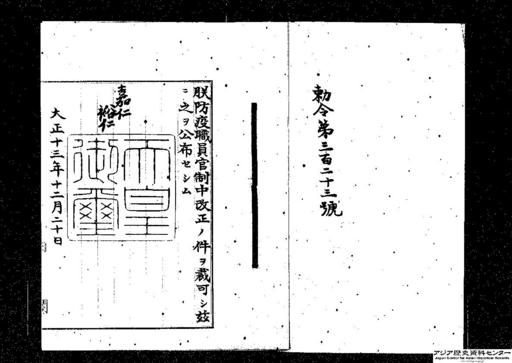 勅令第三百二十三號
朕防疫職員官制中改正ノ件ヲ裁可シ茲
ニ之ヲ公布セシム
嘉仁
裕仁
天皇
御璽
大正十三年十二月二十日
アジア歴史資料センター
Japan Center for Asian Historical Records